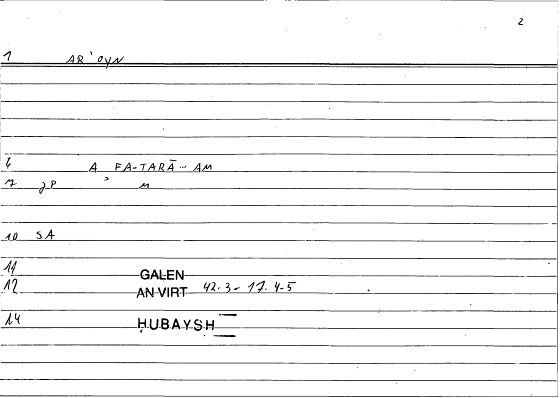 2
1 AR'OYN
6 A FA-TARĀ... AM
7 JP , M
10 SA
11 GALEN
12 AN VIRT 42.3-17.4-5
14 ḤUBAYSH